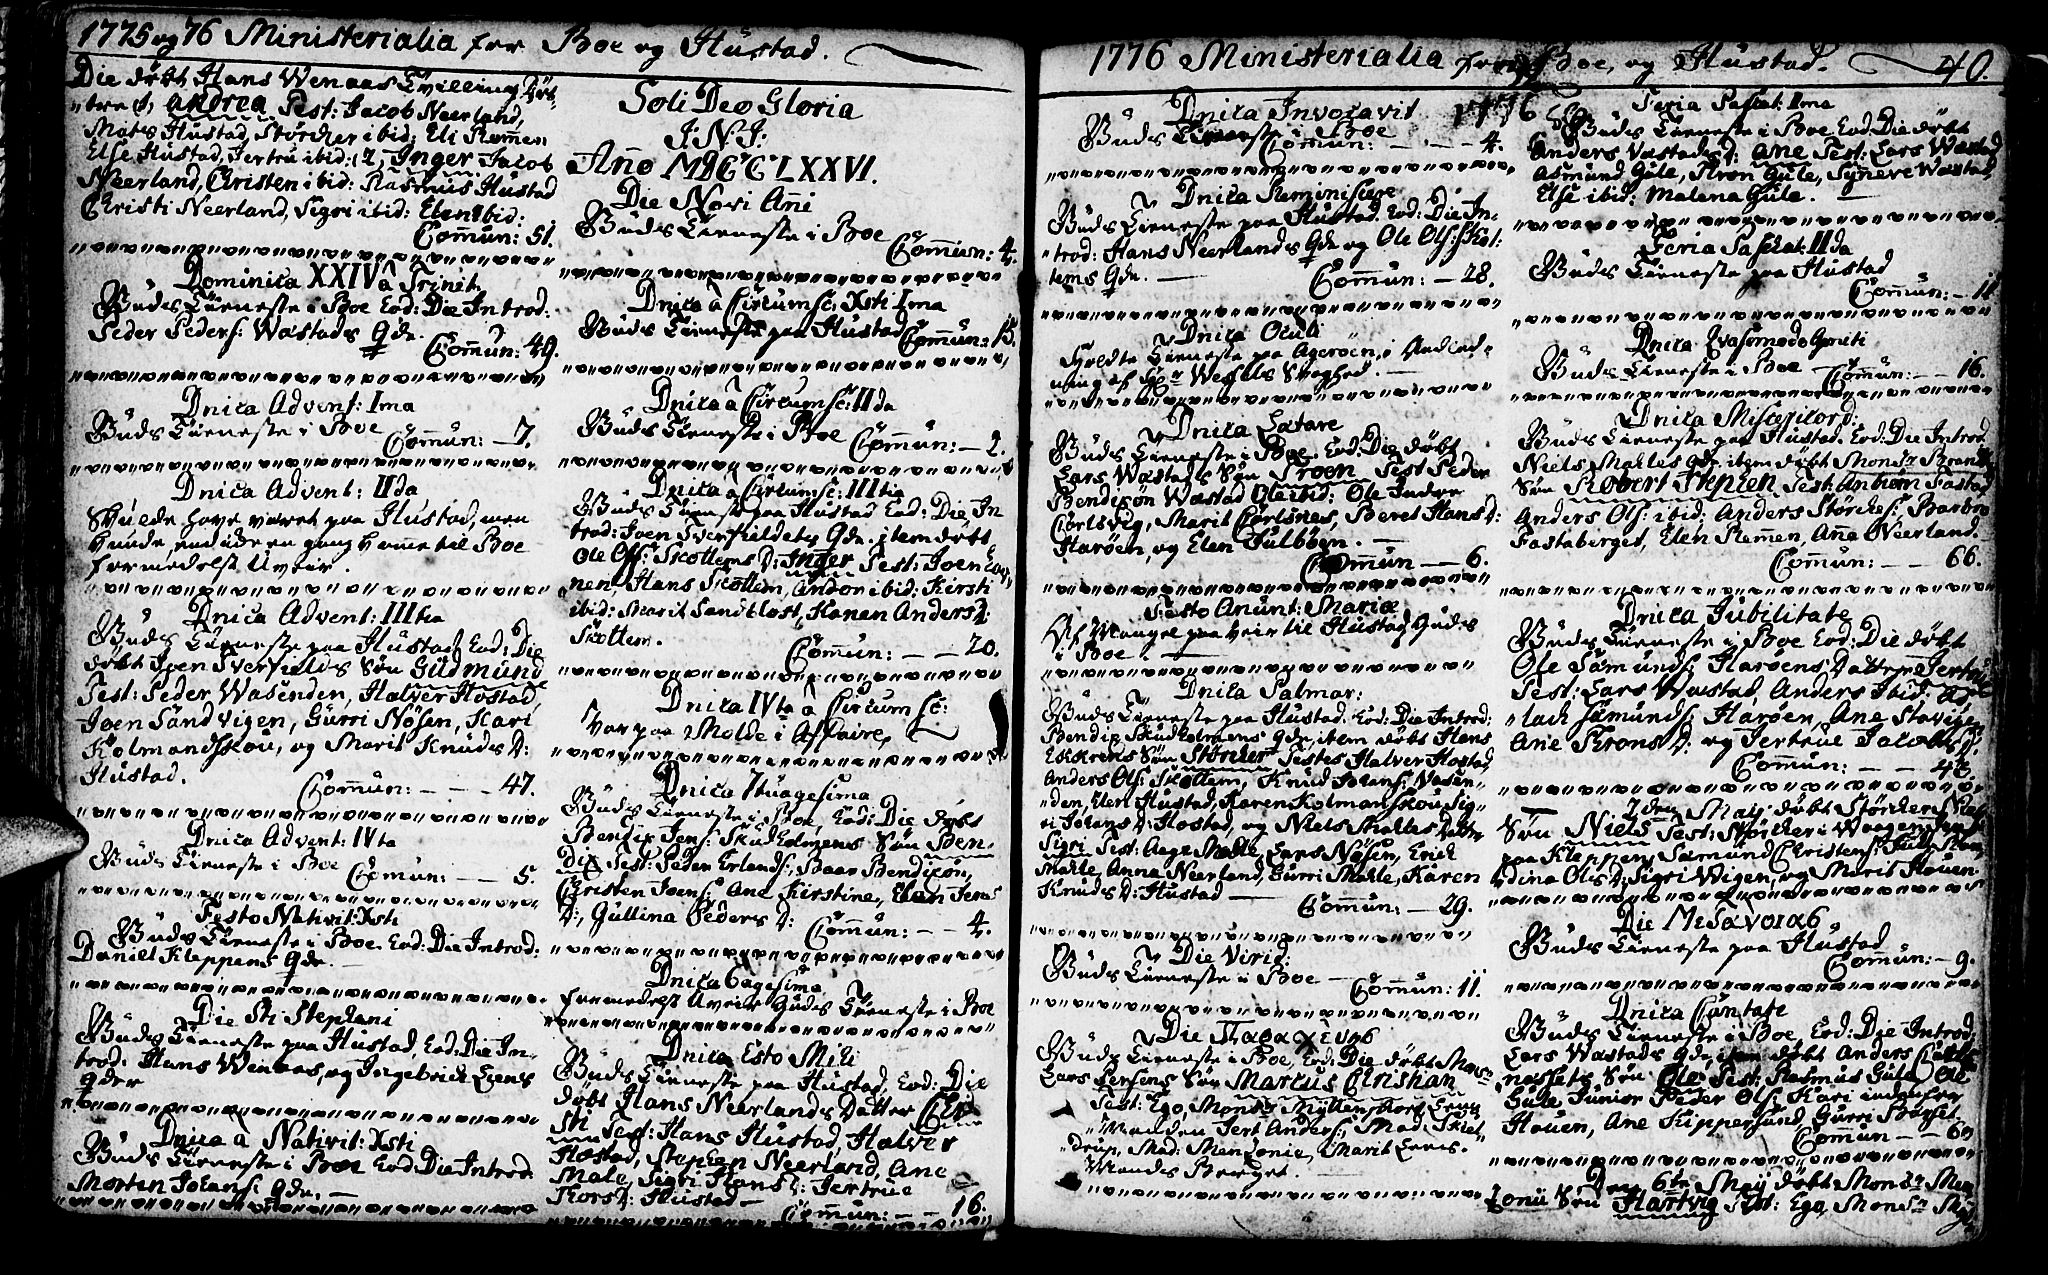 1775 og 76 Ministerialia for Boe og Hustad.
Die döbt Hans Wenaas Tvilling Döt-
tre 1, Andrea Test: Jacob Neerland,
Mats Hustad, Störcher ibid: Eli Remen
Else Hustad, Jertru ibid: 2, Inger Jacob
Neerland, Christen ibid: Rasmus Hustad
Christi Neerland, Sigri ibid: Elen ibid:
Commun: 51.
Dominica XXIV à Trinit.
Guds Tieneste i Boe Eod: Die Introd:
Peder Peders: Wastads Qde.
Commun: 49.
Dnica Advent: Ima
Guds Tieneste i Boe
Commun: 7.
Dnica Advent: IIda
Skulde have været paa Hustad, men
kunde end ide en gang komme til Boe
formedelst Uveir.
Dnica Advent: IIItia
Guds Tieneste paa Hustad Eod: Die
döbt Joen Tverfields Sön Gudmund
Test: Peder Wasenden, Halver Hostad,
Joen Sandvigen, Gurri Nösen, Kari
Kolmandskou, og Marit Knuds D:
Hustad.
Commun: - - - 47.
Dnica Advent: IVta
Guds Tieneste i Boe
Commun: - - 5.
Festo Nativit: Xsti
Guds Tieneste i Boe. Eod: Die Introd:
Daniel Kleppens Qde.
Die Sti Stephani
Guds Tieneste paa Hustad, Eod: Die In-
trod: Hans Wenaas, og Ingebrict Ezens
Qder
Dnica à Nativit: Xsti
Guds Tieneste i Boe Eod: Die Introd:
Morten Johans: Qde.
Soli Deo Gloria
J: N: J:
Año MDCCLXXVI.
Die Novi Ani
Guds Tieneste i Boe
Commun: 4.
Dnica à Circumsc: Xsti Ima
Guds Tieneste paa Hustad
Commun: 15.
Dnica à Circumsc: IIda
Guds Tieneste i Boe Commun: - 2.
Dnica à Circumsc: IIItia
Guds Tieneste paa Hustad Eod: Die In
trod: Joen Tverfieldets Qde. item döbt
Ole Ols: Skottems D: Inger Test: Joen
nen, Hans Skottem, Andor ibid: Kirsti
ibid: Marit Sandblost, Karen Anders D:
Skottem.
Commun: - - 20.
Dnica IVta à Circumsc:
Var paa Molde i Affaires
Dnica 7tuagesima
Guds Tieneste i Boe, Eod: Die döbt
Bendix Jens: Skudholmens Sön Ben-
dix Test: Peder Erlands: Baar Bendixön,
Christen Joens: Ane Kirstine, Elen Jens
D:, Gullina Peders D: Commun: - - 4.
Dnica 6agesima
Formedelst Uveir Guds Tieneste i Boe
Dnica Esto Mihi
Guds Tieneste paa Hustad, Eod: Die
döbt Hans Neerlands Datter Chri-
sti Test: Hans Hustad, Halver
Hostad, Stephen Neerland, Ane
Male, Sigri Hans D: Jertrue
Thors D: Hustad -
Commun: - - 16.
1776 Ministerialia for Boe, og Hustad.
40.
Dnica Invocavit 1776
Guds Tieneste i Boe
Commun: - - - 4.
Dnica Reminiscere
Guds Tieneste paa Hustad. Eod: Die In-
trod: Hans Neerlands Qde og Ole Ols: Skot-
tems Qde. - Commun: - 28.
Dnica Oculi
Holdte Tieneste paa Ageröen, i Anled-
ning af Hr Wessels Svaghed.
Dnica Lætare
Guds Tieneste i Boe. Eod: Die döbt
Lars Wastads Sön Troen Test Peder
Bendixön Wastad Ole ibid: Ole Indre
Cortsvig, Marit Cortsnes, Beret Hans D:
Haröen, og Elen Julböen.
Commun - - 6.
Festo Anunt: Mariæ
Af Mangel paa Veir til Hustad, Guds
i Boe.
Dnica Palmar:
Guds Tieneste paa Hustad. Eod: Die Introd:
Bendix Skudholmens Qde, item döbt Hans
Ekkrens Sön Störcher Testes Halver Hostad,
Anders Ols: Skottem, Knud Johans: Vasen-
den, Elen Hustad, Karen Kolmanskou, Sig-
ri Johans D: Hostad, og Niels Malles Datter
Sigri Test: Aage Malle, Lars Nösen, Erich
Malle, Anna Neerland, Gurri Malle, Karen
Knuds D: Hustad - Commun: - 29.
Die Virid:
Guds Tieneste i Boe -
Commun: 11.
Die Παρασχευης
Guds Tieneste i Boe, Eod: Die döbt Mons:r
Lars Persens Sön Marcus Christian
Test: Ego, Mons:r Myllenphort,
Manden Jert Anders: Mad: Skiel-
drup, Mad: Menzonie, Marit Lens-
Mands Berget.
Feria Paschat: Ima
Guds Tieneste i Boe Eod: Die döbt
Anders Vastads D: Ane Test: Lars Wastad
Asmund Gule, Thron Gule, Synneve Wastad,
Else ibid: Malena Gule.
Feria Paschat: IIda
Guds Tieneste paa Hustad
Commun: - 11
Dnica Qvasimodo Geniti
Guds Tieneste i Boe
Commun: - - 16.
Dnica Misericord:
Guds Tieneste paa Hustad. Eod: Die Introd.
Niels Malles Qde. item döbt Mons:r
Sön Robert Stephen Test: Anbiörn Fastad
Anders Ols: ibid: Anders Störches: Barbro
Fastaberget, Elen Remmen, Ana Neerland.
Commun: - - 66.
Dnica Jubilitate
Guds Tieneste i Boe Eod: Die döbt
Ole Samunds: Haroens Datter Jertrue
Test: Lars Wastad, Anders Ibid:
lach Samunds: Haröen, Ane Stavigen
Ane Throns D: og Jertrue Jacobs D:
Commun: - - 43.
2den May döbt Störcher
Sön Niels Test: Störcher Waagen,
paa Kleppen, Samund Christens:
dina Ols D: Sigri Wigen, og Marit Houen
Die Μεσαvoras
Guds Tieneste paa Hustad
Commun: - 9.
Dnica Cantate
Guds Tieneste i Boe Eod: Die Introd.
Lars Wastads Qde, item döbt Anders
nessets Sön Ole Test: Rasmus Gule, Ole
Gule Junior Peder Ols: Kari
Houen, Ane Kippersund, Gurri Berget
Commun - - 60
Den 6te May döbt Mons:r Men
zonii Sön Hartvig Test: Ego, Mons:r